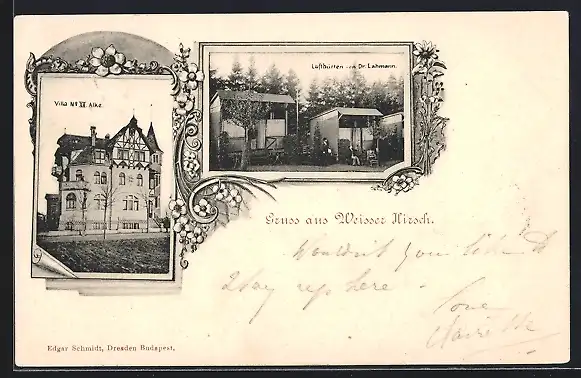 Villa No XI Alke.
Lufthütten von Dr. Lahmann.
Gruss aus Weisser Hirsch.
Wouldn't you like to
stay here
Love
Edgar Schmidt, Dresden Budapest.